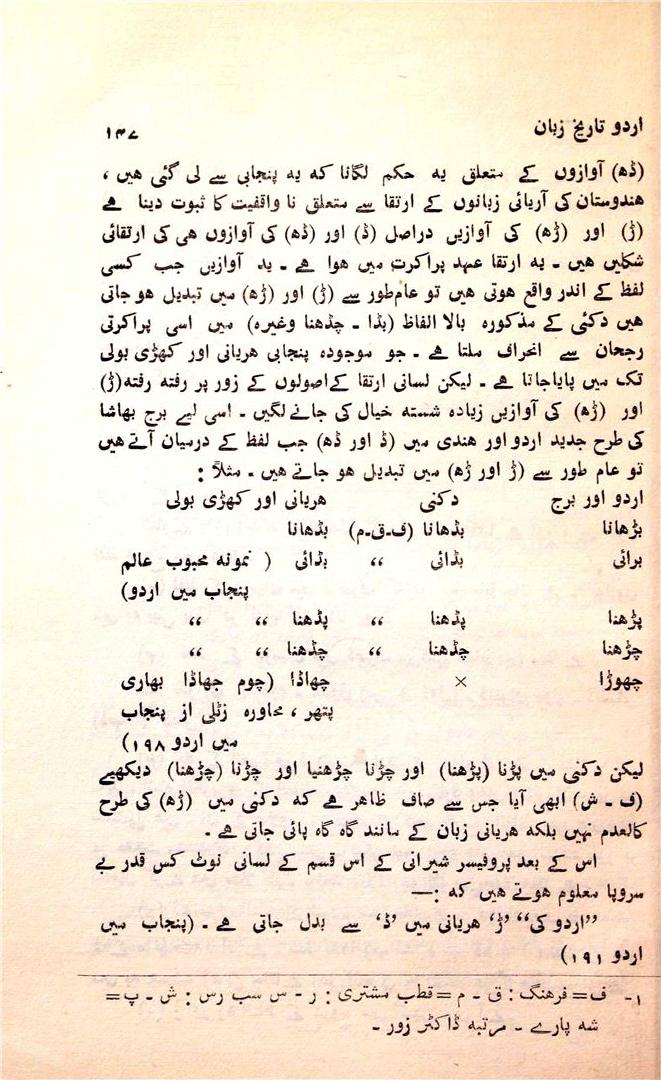 اردو تاریخ زبان ۱۴۷
(ڈھ) آوازوں کے متعلق یہ حکم لگانا کہ یہ پنجابی سے لی گئی ہیں ،
ہندوستان کی آریائی زبانوں کے ارتقا سے متعلق نا واقفیت کا ثبوت دینا ہے
(ڑ) اور (ڑھ) کی آوازیں دراصل (ڈ) اور (ڈھ) کی آوازوں ہی کی ارتقائی
شکلیں ہیں ۔ یہ ارتقا عہد پراکرت میں ہوا ہے ۔ یہ آوازیں جب کسی
لفظ کے اندر واقع ہوتی ہیں تو عام طور سے (ڑ) اور (ڑھ) میں تبدیل ہو جاتی
ہیں دکنی کے مذکورہ بالا الفاظ (بڈا ۔ چڈھنا وغیرہ) میں اسی پراکرتی
رجحان سے انحراف ملتا ہے ۔ جو موجودہ پنجابی ہریانی اور کھڑی بولی
تک میں پایا جاتا ہے ۔ لیکن لسانی ارتقا کے اصولوں کے زور پر رفتہ رفتہ (ڑ)
اور (ڑھ) کی آوازیں زیادہ شستہ خیال کی جانے لگیں ۔ اسی لیے برج بھاشا
کی طرح جدید اردو اور ہندی میں (ڈ اور ڈھ) جب لفظ کے درمیان آتے ہیں
تو عام طور سے (ڑ اور ڑھ) میں تبدیل ہو جاتے ہیں ۔ مثلاً :
اردو اور برج دکنی ہریانی اور کھڑی بولی
بڑھانا بڈھانا (ف-ق-م) بڈھانا
برائی بڈائی ،، بڈائی ( نمونہ محبوب عالم
پنجاب میں اردو)
پڑھنا پڈھنا ،، پڈھنا ،، ،،
چڑھنا چڈھنا ،، چڈھنا ،، ،،
چھوڑا × چھاڈا (چوم جھاڈا بھاری
پتھر ، محاورہ زٹلی از پنجاب
میں اردو ۱۹۸)
لیکن دکنی میں پڑنا (پڑھنا) اور چڑنا چڑھنیا اور چڑنا (چڑھنا) دیکھیے
(ف ۔ ش) ابھی آیا جس سے صاف ظاہر ہے کہ دکنی میں (ڑھ) کی طرح
کالعدم نہیں بلکہ ہریانی زبان کے مانند گاہ گاہ پائی جاتی ہے ۔
اس کے بعد پروفیسر شیرانی کے اس قسم کے لسانی نوٹ کس قدر بے
سروپا معلوم ہوتے ہیں کہ :—
”اردو کی“ ’ڑ‘ ہریانی میں ’ڈ‘ سے بدل جاتی ہے ۔ (پنجاب میں
اردو ۱۹۱)
۱- ف = فرہنگ : ق ۔ م = قطب مشتری : ر ۔ س سب رس : ش ۔ پ =
شہ پارے ۔ مرتبہ ڈاکٹر زور ۔